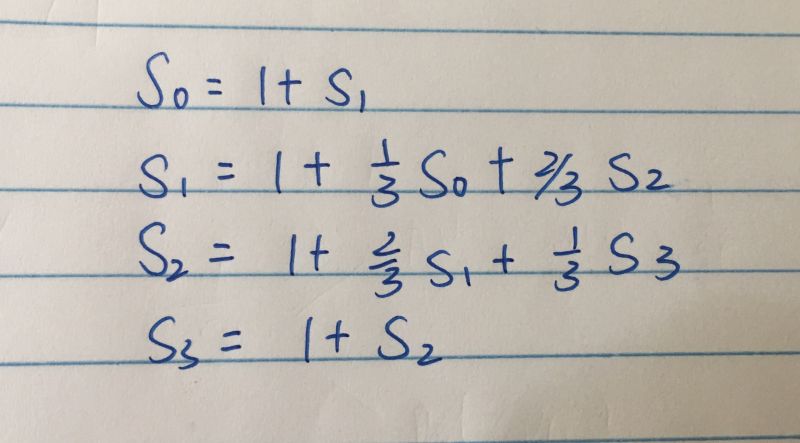 S₀ = 1 + S₁
S₁ = 1 + 1/3 S₀ + 2/3 S₂
S₂ = 1 + 2/3 S₁ + 1/3 S₃
S₃ = 1 + S₂